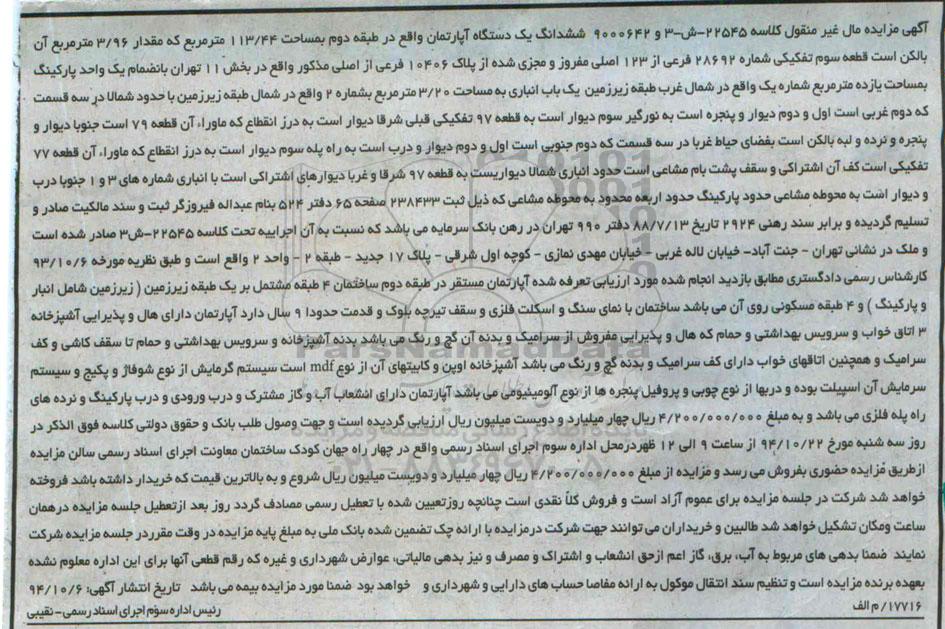 آگهی مزایده مال غیر منقول کلاسه ۲۲۵۴۵-ش-۳ و ۹۰۰۰۶۴۲ ششدانگ یک دستگاه آپارتمان واقع در طبقه دوم بمساحت ۱۱۳/۴۴ مترمربع که مقدار ۳/۹۶ مترمربع آن
بالکن است قطعه سوم تفکیکی شماره ۲۸۶۹۲ فرعی از ۱۲۳ اصلی مفروز و مجزی شده از پلاک ۱۰۴۰۶ فرعی از اصلی مذکور واقع در بخش ۱۱ تهران بانضمام یک واحد پارکینگ
بمساحت یازده مترمربع شماره یک واقع در شمال غرب طبقه زیرزمین یک باب انباری به مساحت ۳/۲۰ مترمربع بشماره ۲ واقع در شمال طبقه زیرزمین با حدود شمالا در سه قسمت
که دوم غربی است اول و دوم دیوار و پنجره است به نورگیر سوم دیوار است به قطعه ۹۷ تفکیکی قبلی شرقا دیوار است به درز انقطاع که ماوراء آن قطعه ۷۹ است جنوبا دیوار و
پنجره و نرده و لبه بالکن است بفضای حیاط غربا در سه قسمت که دوم جنوبی است اول و دوم دیوار و درب است به راه پله سوم دیوار است به درز انقطاع که ماوراء آن قطعه ۷۷
تفکیکی است کف آن اشتراکی و سقف پشت بام مشاعی است حدود انباری شمالا دیواریست به قطعه ۹۷ شرقا و غربا دیوارهای اشتراکی است با انباری شماره های ۳ و ۱ جنوبا درب
و دیوار است به محوطه مشاعی حدود پارکینگ حدود اربعه محدود به محوطه مشاعی که ذیل ثبت ۲۳۸۴۳۳ صفحه ۶۵ دفتر ۵۲۴ بنام عبداله فیروزگر ثبت و سند مالکیت صادر و
تسلیم گردیده و برابر سند رهنی ۲۹۲۴ تاریخ ۸۸/۷/۱۳ دفتر ۹۹۰ تهران در رهن بانک سرمایه می باشد که نسبت به آن اجراییه تحت کلاسه ۲۲۵۴۵-ش۳ صادر شده است
و ملک در نشانی تهران - جنت آباد- خیابان لاله غربی - خیابان مهدی نمازی - کوچه اول شرقی - پلاک ۱۷ جدید - طبقه ۲ - واحد ۲ واقع است و طبق نظریه مورخه ۹۳/۱۰/۶
کارشناس رسمی دادگستری مطابق بازدید انجام شده مورد ارزیابی تعرفه شده آپارتمان مستقر در طبقه دوم ساختمان ۴ طبقه مشتمل بر یک طبقه زیرزمین ( زیرزمین شامل انبار
و پارکینگ ) و ۴ طبقه مسکونی روی آن می باشد ساختمان با نمای سنگ و اسکلت فلزی و سقف تیرچه بلوک و قدمت حدودا ۹ سال دارد آپارتمان دارای هال و پذیرایی آشپزخانه
۳ اتاق خواب و سرویس بهداشتی و حمام که هال و پذیرایی مفروش از سرامیک و بدنه آن گچ و رنگ می باشد بدنه آشپزخانه و سرویس بهداشتی و حمام تا سقف کاشی و کف
سرامیک و همچنین اتاقهای خواب دارای کف سرامیک و بدنه گچ و رنگ می باشد آشپزخانه اوپن و کابینهای آن از نوع mdf است سیستم گرمایش از نوع شوفاژ و پکیج و سیستم
سرمایش آن اسپیلت بوده و دربها از نوع چوبی و پروفیل پنجره ها از نوع آلومینیومی می باشد آپارتمان دارای انشعاب آب و گاز مشترک و درب ورودی و درب پارکینگ و نرده های
راه پله فلزی می باشد و به مبلغ ۴/۲۰۰/۰۰۰/۰۰۰ ریال چهار میلیارد و دویست میلیون ریال ارزیابی گردیده است و جهت وصول طلب بانک و حقوق دولتی کلاسه فوق الذکر در
روز سه شنبه مورخ ۹۴/۱۰/۲۲ از ساعت ۹ الی ۱۲ ظهردرمحل اداره سوم اجرای اسناد رسمی واقع در چهار راه جهان کودک ساختمان معاونت اجرای اسناد رسمی سالن مزایده
ازطریق مزایده حضوری بفروش می رسد و مزایده از مبلغ ۴/۲۰۰/۰۰۰/۰۰۰ ریال چهار میلیارد و دویست میلیون ریال شروع و به بالاترین قیمت که خریدار داشته باشد فروخته
خواهد شد شرکت در جلسه مزایده برای عموم آزاد است و فروش کلاً نقدی است چنانچه روزتعیین شده با تعطیل رسمی مصادف گردد روز بعد ازتعطیل جلسه مزایده درهمان
ساعت ومکان تشکیل خواهد شد طالبین و خریداران می توانند جهت شرکت درمزایده با ارائه چک تضمین شده بانک ملی به مبلغ پایه مزایده در وقت مقرردر جلسه مزایده شرکت
نمایند ضمنا بدهی های مربوط به آب، برق، گاز اعم ازحق انشعاب و اشتراک و مصرف و نیز بدهی مالیاتی، عوارض شهرداری و غیره که رقم قطعی آنها برای این اداره معلوم نشده
بعهده برنده مزایده است و تنظیم سند انتقال موکول به ارائه مفاصا حساب های دارایی و شهرداری و خواهد بود ضمنا مورد مزایده بیمه می باشد تاریخ انتشار آگهی: ۹۴/۱۰/۶
۱۷۷۱۶/ م الف رئیس اداره سوم اجرای اسناد رسمی - نقیبی
ParsNamadData